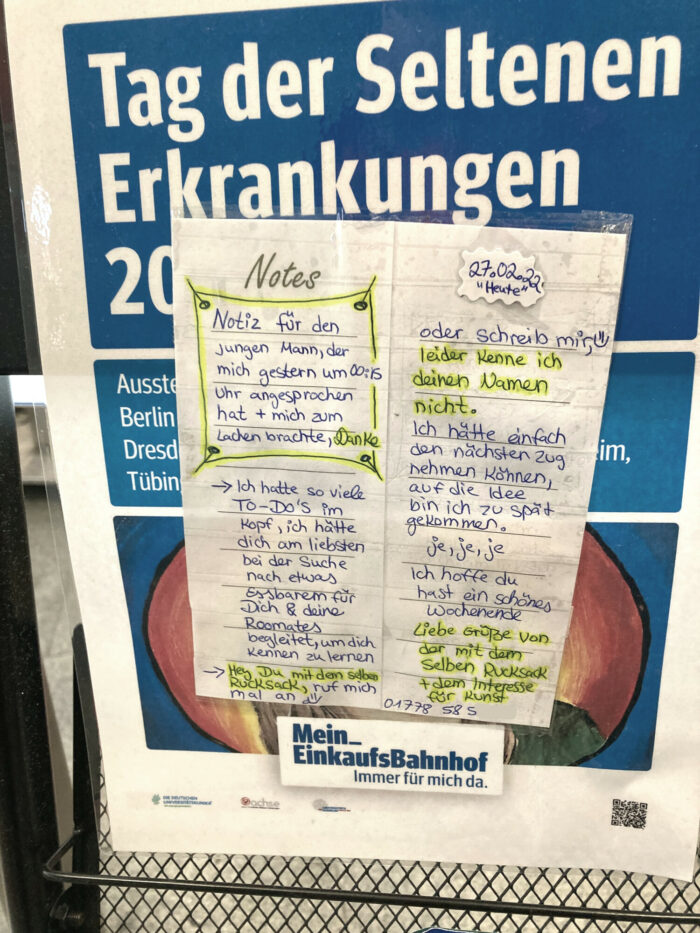 Tag der Seltenen
Erkrankungen
20
Ausste
Berlin
Dresd
Tübin
eim,
Notes
Notiz für den
jungen Mann, der
mich gestern um 00:15
Uhr angesprochen
hat + mich zum
Lachen brachte, Danke
→ Ich hatte so viele
TO-DO'S im
Kopf, ich hätte
dich am liebsten
bei der Suche
nach etwas
Essbarem für
Dich & deine
Roomates
begleitet, um dich
kennen zu lernen
→ Hey Du mit dem selben
Rucksack, ruf mich
mal an
27.02.22
"Heute"
oder schreib mir,
leider kenne ich
deinen Namen
nicht.
Ich hätte einfach
den nächsten Zug
nehmen können,
auf die Idee
bin ich zu spät
gekommen.
je, je, je
Ich hoffe du
hast ein schönes
Wochenende
Liebe Grüße von
der mit dem
selben Rucksack
+ dem Interesse
für Kunst
01778 58 5
Mein_
EinkaufsBahnhof
Immer für mich da.
DIE DEUTSCHEN
UNIVERSITÄTSKLINIKA
achse